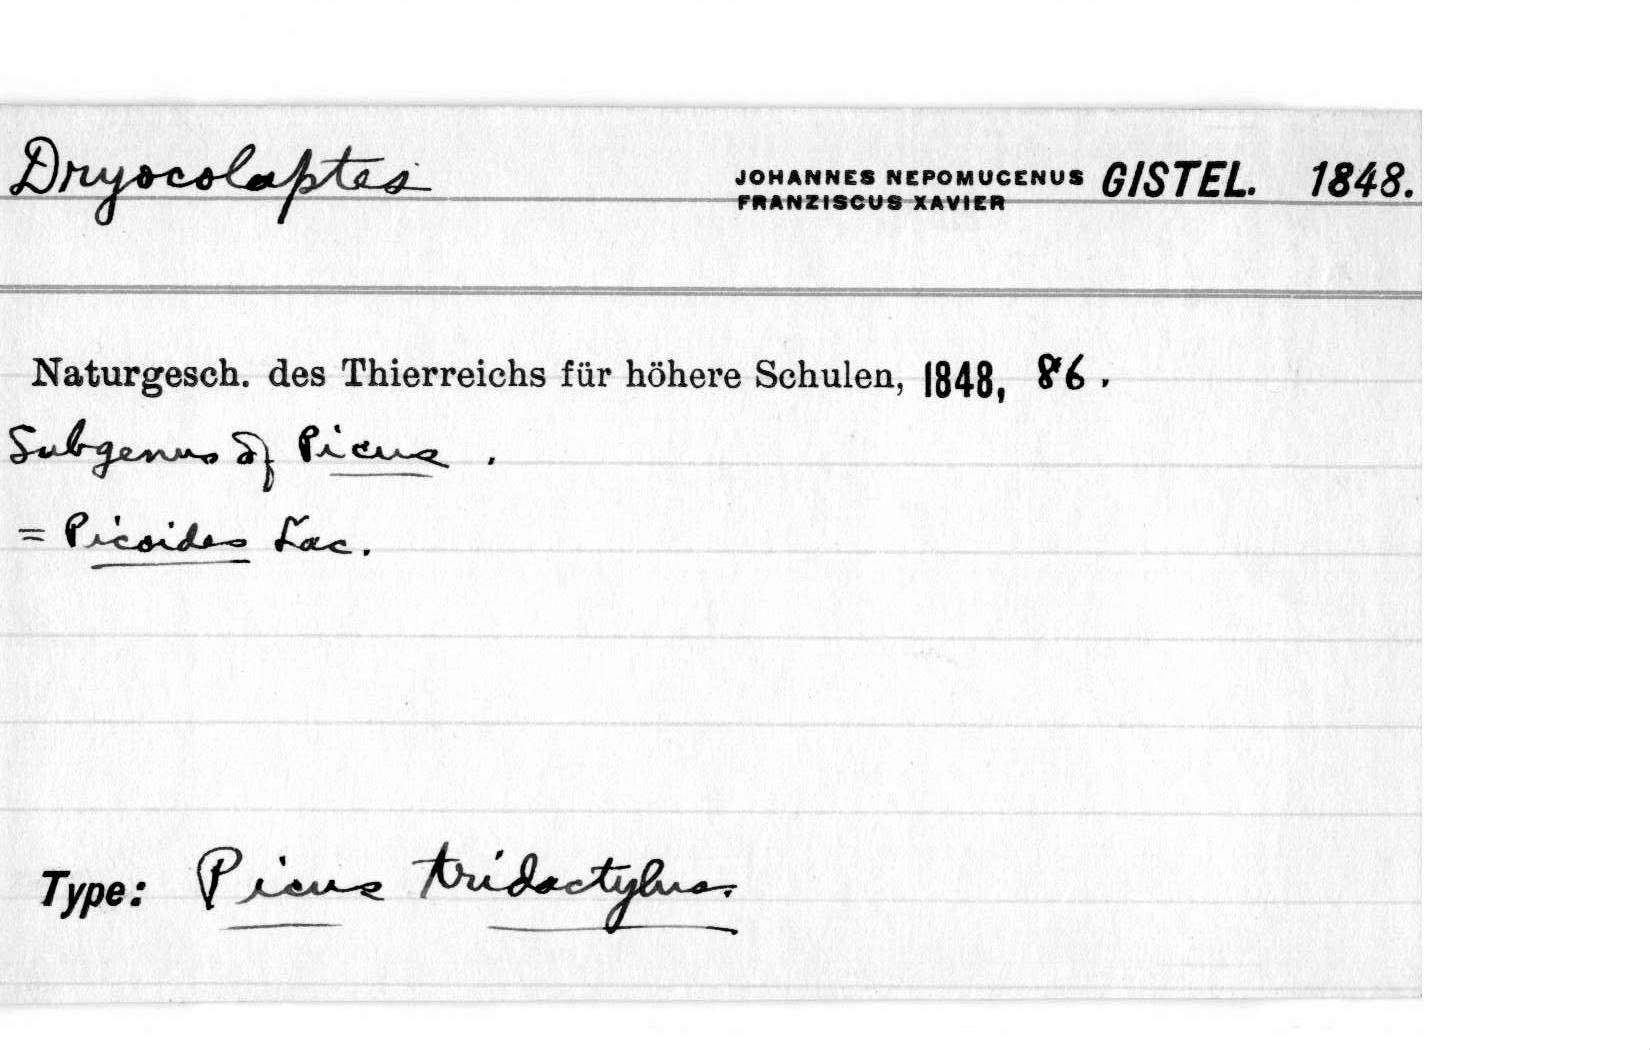 Dryocolaptes JOHANNES NEPOMUCENUS FRANZISCUS XAVIER GISTEL. 1848.
Naturgesch. des Thierreichs für höhere Schulen, 1848, 86.
Subgenus of Picus.
= Picoides Lac.
Type: Picus tridactylus.